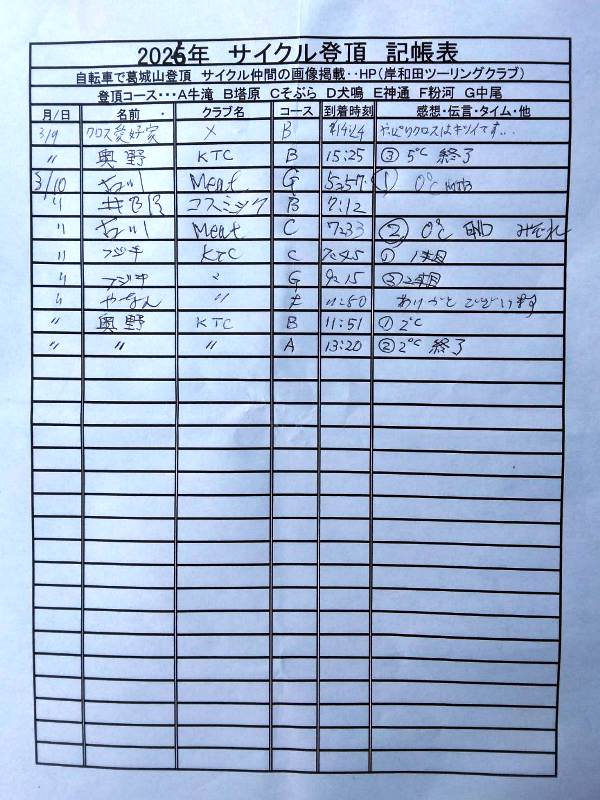 2026年 サイクル登頂 記帳表
自転車で葛城山登頂 サイクル仲間の画像掲載‥HP(岸和田ツーリングクラブ)
登頂コース・・・A牛滝 B塔原 Cそぶら D犬鳴 E神通 F粉河 G中尾
月/日 名前 クラブ名 コース 到着時刻 感想・伝言・タイム・他
3/9 クロス愛好家 × B 14:24 やっぱりクロスはキツイです...
〃 奥野 KTC B 15:25 ③ 5℃ 終了
3/10 古川 Meat G 5:57 ① 0℃
〃 コスミック B 7:12
〃 古川 Meat C 7:33 ② 0℃ END みぞれ
〃 フジキ KTC C 7:45 ① 1本目
〃 フジキ 〃 G 9:15 ② 2本目
〃 やなん 〃 11:50 ありがとうございます
〃 奥野 KTC B 11:51 ① 2℃
〃 〃 〃 A 13:20 ② 2℃ 終了